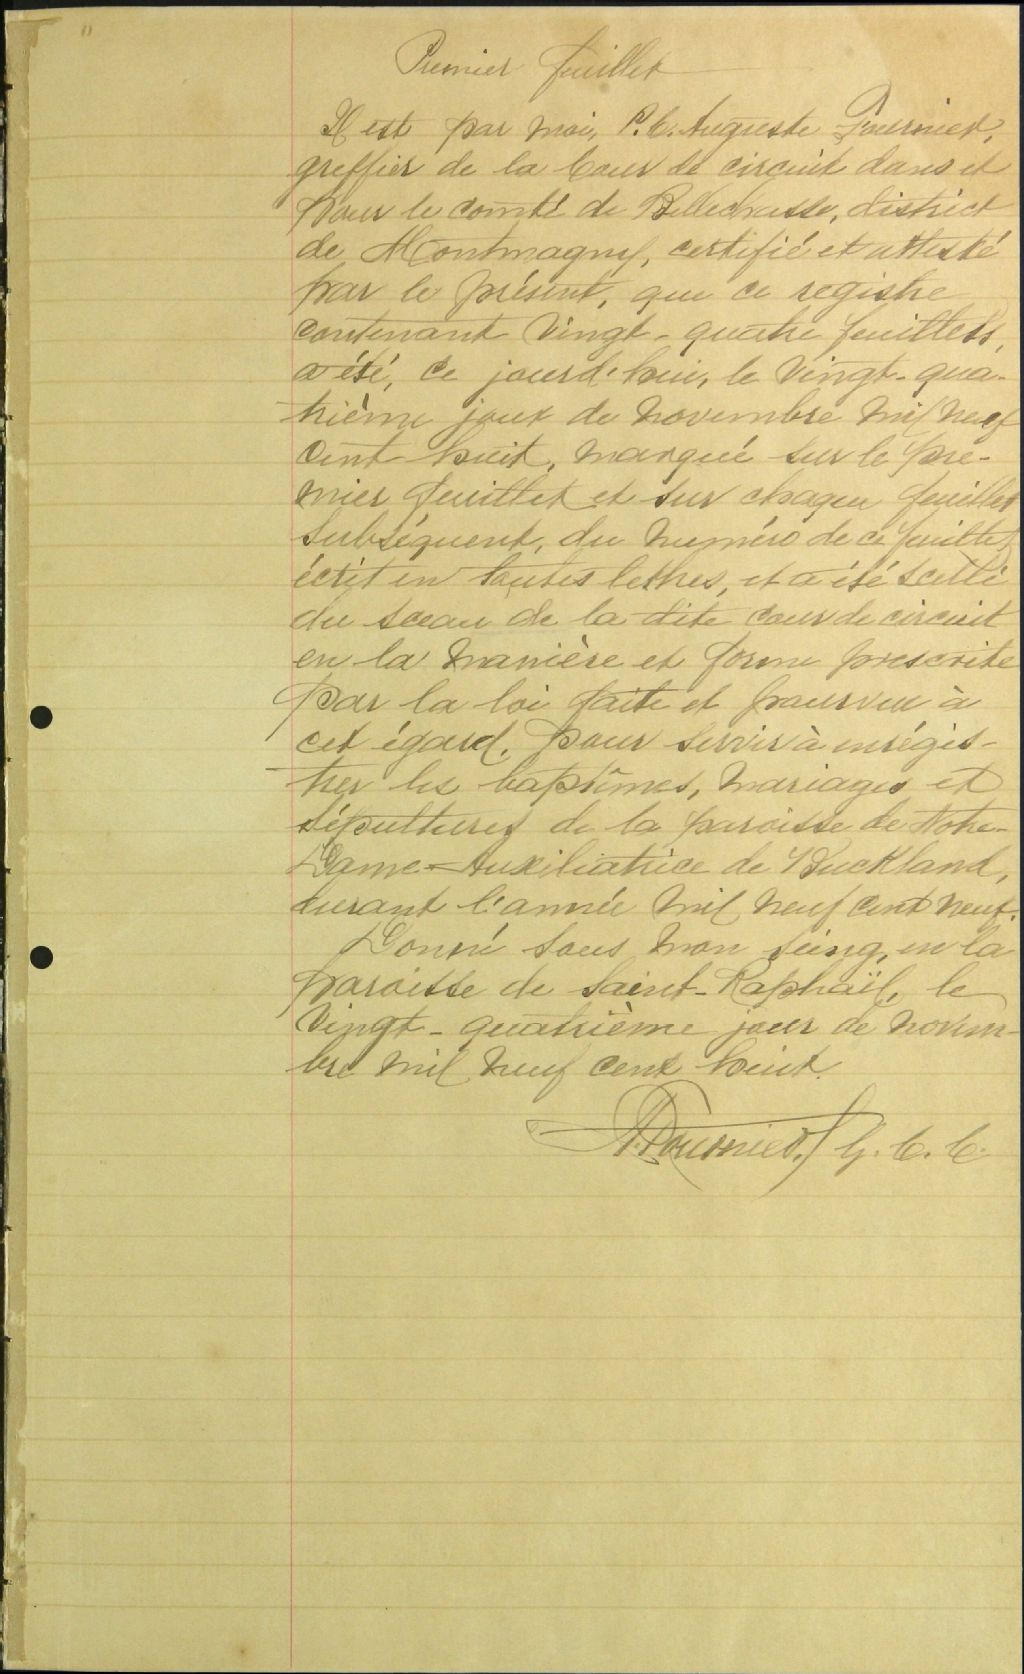 Premier feuillet
Il est par moi, P. C. Auguste Fournier,
greffier de la Cour de circuit dans et
pour le comté de Bellechasse, district
de Montmagny, certifié et attesté
par le présent, que ce registre
contenant vingt-quatre feuillets,
a été, ce jourd'hui, le vingt-qua-
trième jour de novembre mil neuf
cent huit, marqué sur le pre-
mier feuillet et sur chaque feuillet
subséquent, du numéro de ce feuillet,
écrit en toutes lettres, et a été scellé
du sceau de la dite cour de circuit
en la manière et forme prescrite
par la loi faite et pourvue à
cet égard, pour servir à enrégis-
trer les baptêmes, mariages et
sépultures de la paroisse de Notre-
Dame-Auxiliatrice de Buckland,
durant l'année mil neuf cent neuf.
Donné sous mon seing, en la
paroisse de Saint-Raphaël, le
vingt-quatrième jour de novem-
bre mil neuf cent huit.
A. Fournier, G. C. C.